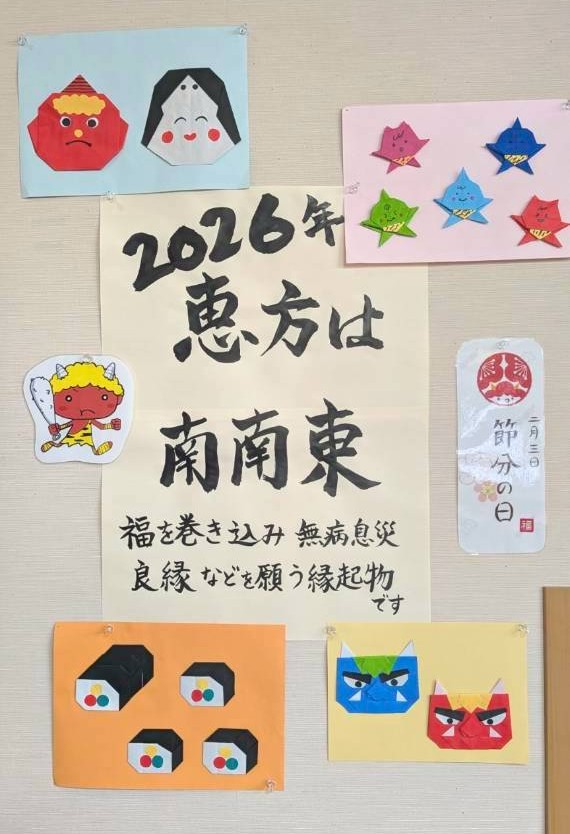 2026年
恵方は
南南東
福を巻き込み 無病息災
良縁などを願う縁起物
です
二月三日
節分の日
福